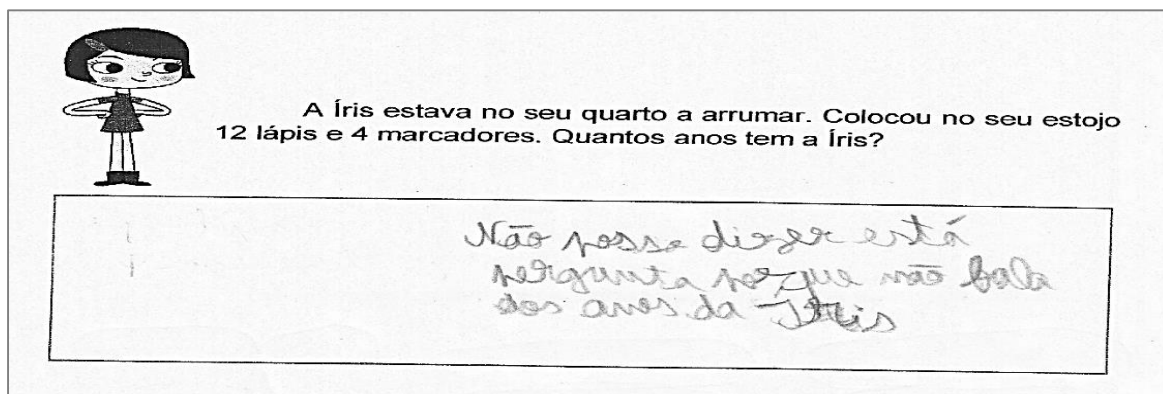 A Íris estava no seu quarto a arrumar. Colocou no seu estojo
12 lápis e 4 marcadores. Quantos anos tem a Íris?
Não posse dizer está
pergunta porque não fala
dos anos da Íris